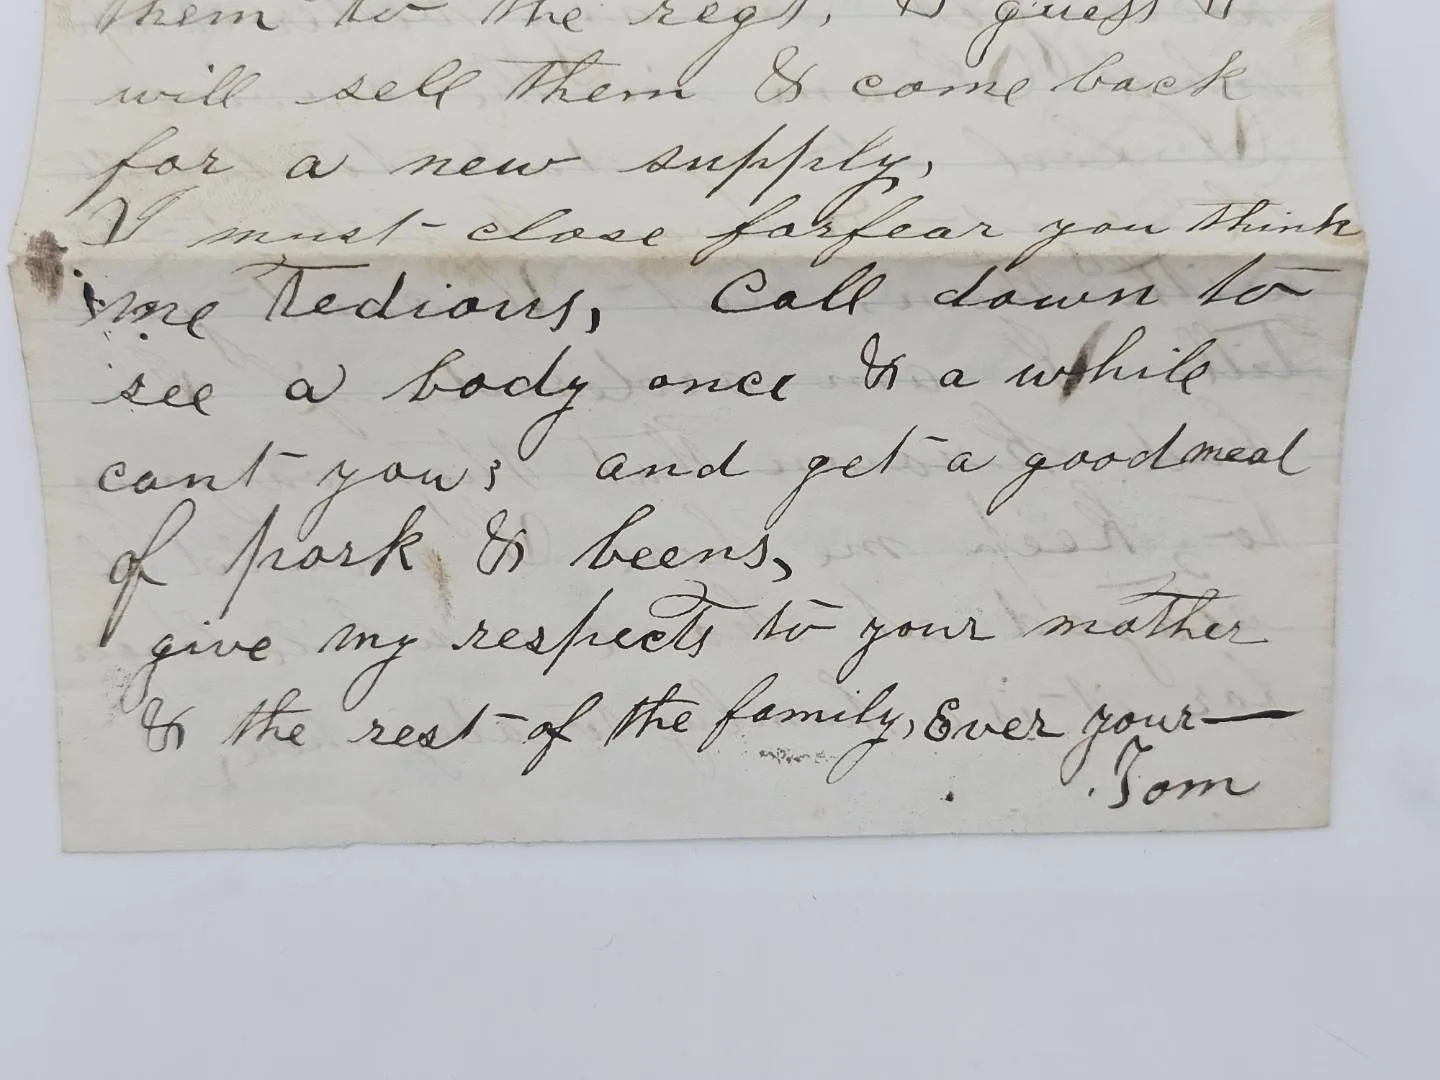 them to the regt, I guess I
will sell them & come back
for a new supply,
I must close forfear you think
me Tedious, Call down to
see a body once & a while
cant you; and get a good meal
of pork & beens,
give my respects to your mother
& the rest of the family, Ever your—
Tom